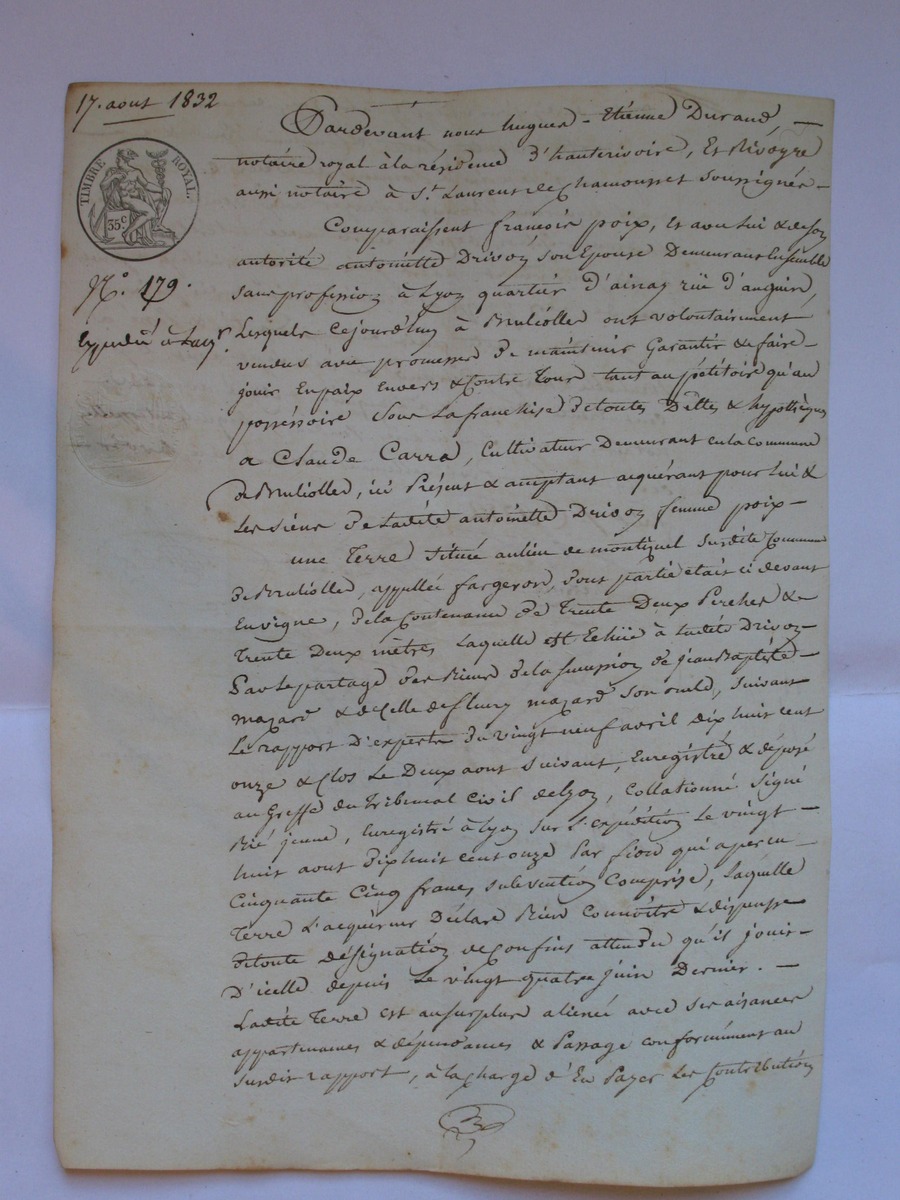 17. aout 1832
TIMBRE ROYAL.
35.c
N.o 179.
Pardevant nous hugues-Etienne Durand,
notaire royal à la résidence d'hauterivoire, et Rivoyre
aussi notaire à S.t Laurent de Chamousset soussignés
Comparaissent françois poix, et avec lui & de son
autorité antoinette Drivon son Epouse Demeurans Ensemble
sans profession à Lyon quartier d'ainay rüe d'anguin,
Lesquels cejourd'huy à Brulliolles ont volontairement
vendus avec promesses de maintenir Garantir & faire
jouir En paix Envers & Contre Tous tant au pétitoire qu'au
possessoire sous La franchise de toutes Dettes & hypothèques
a Claude Carra, Cultivateur Demeurant en la commune
de Brulliolles, ici Présent & acceptant acquérant pour lui &
Les siens de Ladite antoinette Drivon femme poix
une Terre située au lieu de montiguel susdite Commune
de Brulliolles, appellée fargeron, dont partie etait ci devant
En vigne, de la Contenance de Trente Deux Perches &
Trente Deux mètres Laquelle est Echüe à Ladite Drivon
Par Le partage des Biens de la succession de jean Baptiste
mazard & de Celle de fleury mazard son oncle, suivant
Le rapport d'experts du vingt neuf avril dix huit cent
onze & Clos Le Deux aout suivant, Enregistré & déposé
au Greffe du Tribunal Civil de Lyon, Collationné signé
Bié jeune, Enregistré à Lyon sur L'expédition Le vingt
huit aout dix huit cent onze Par qui a perçu
Cinquante Cinq francs subvention Comprise, Laquelle
Terre L'acquéreur Déclare Bien Connoitre & dispense
de toute désignation de Confins attendu qu'il jouit
D'icelle depuis Le vingt quatre juin Dernier.
Ladite Terre est au surplus alienée avec ses aisances
appartenances & dépendances & Passage conformément au
susdit rapport, à la charge d'En Payer Les Contributions